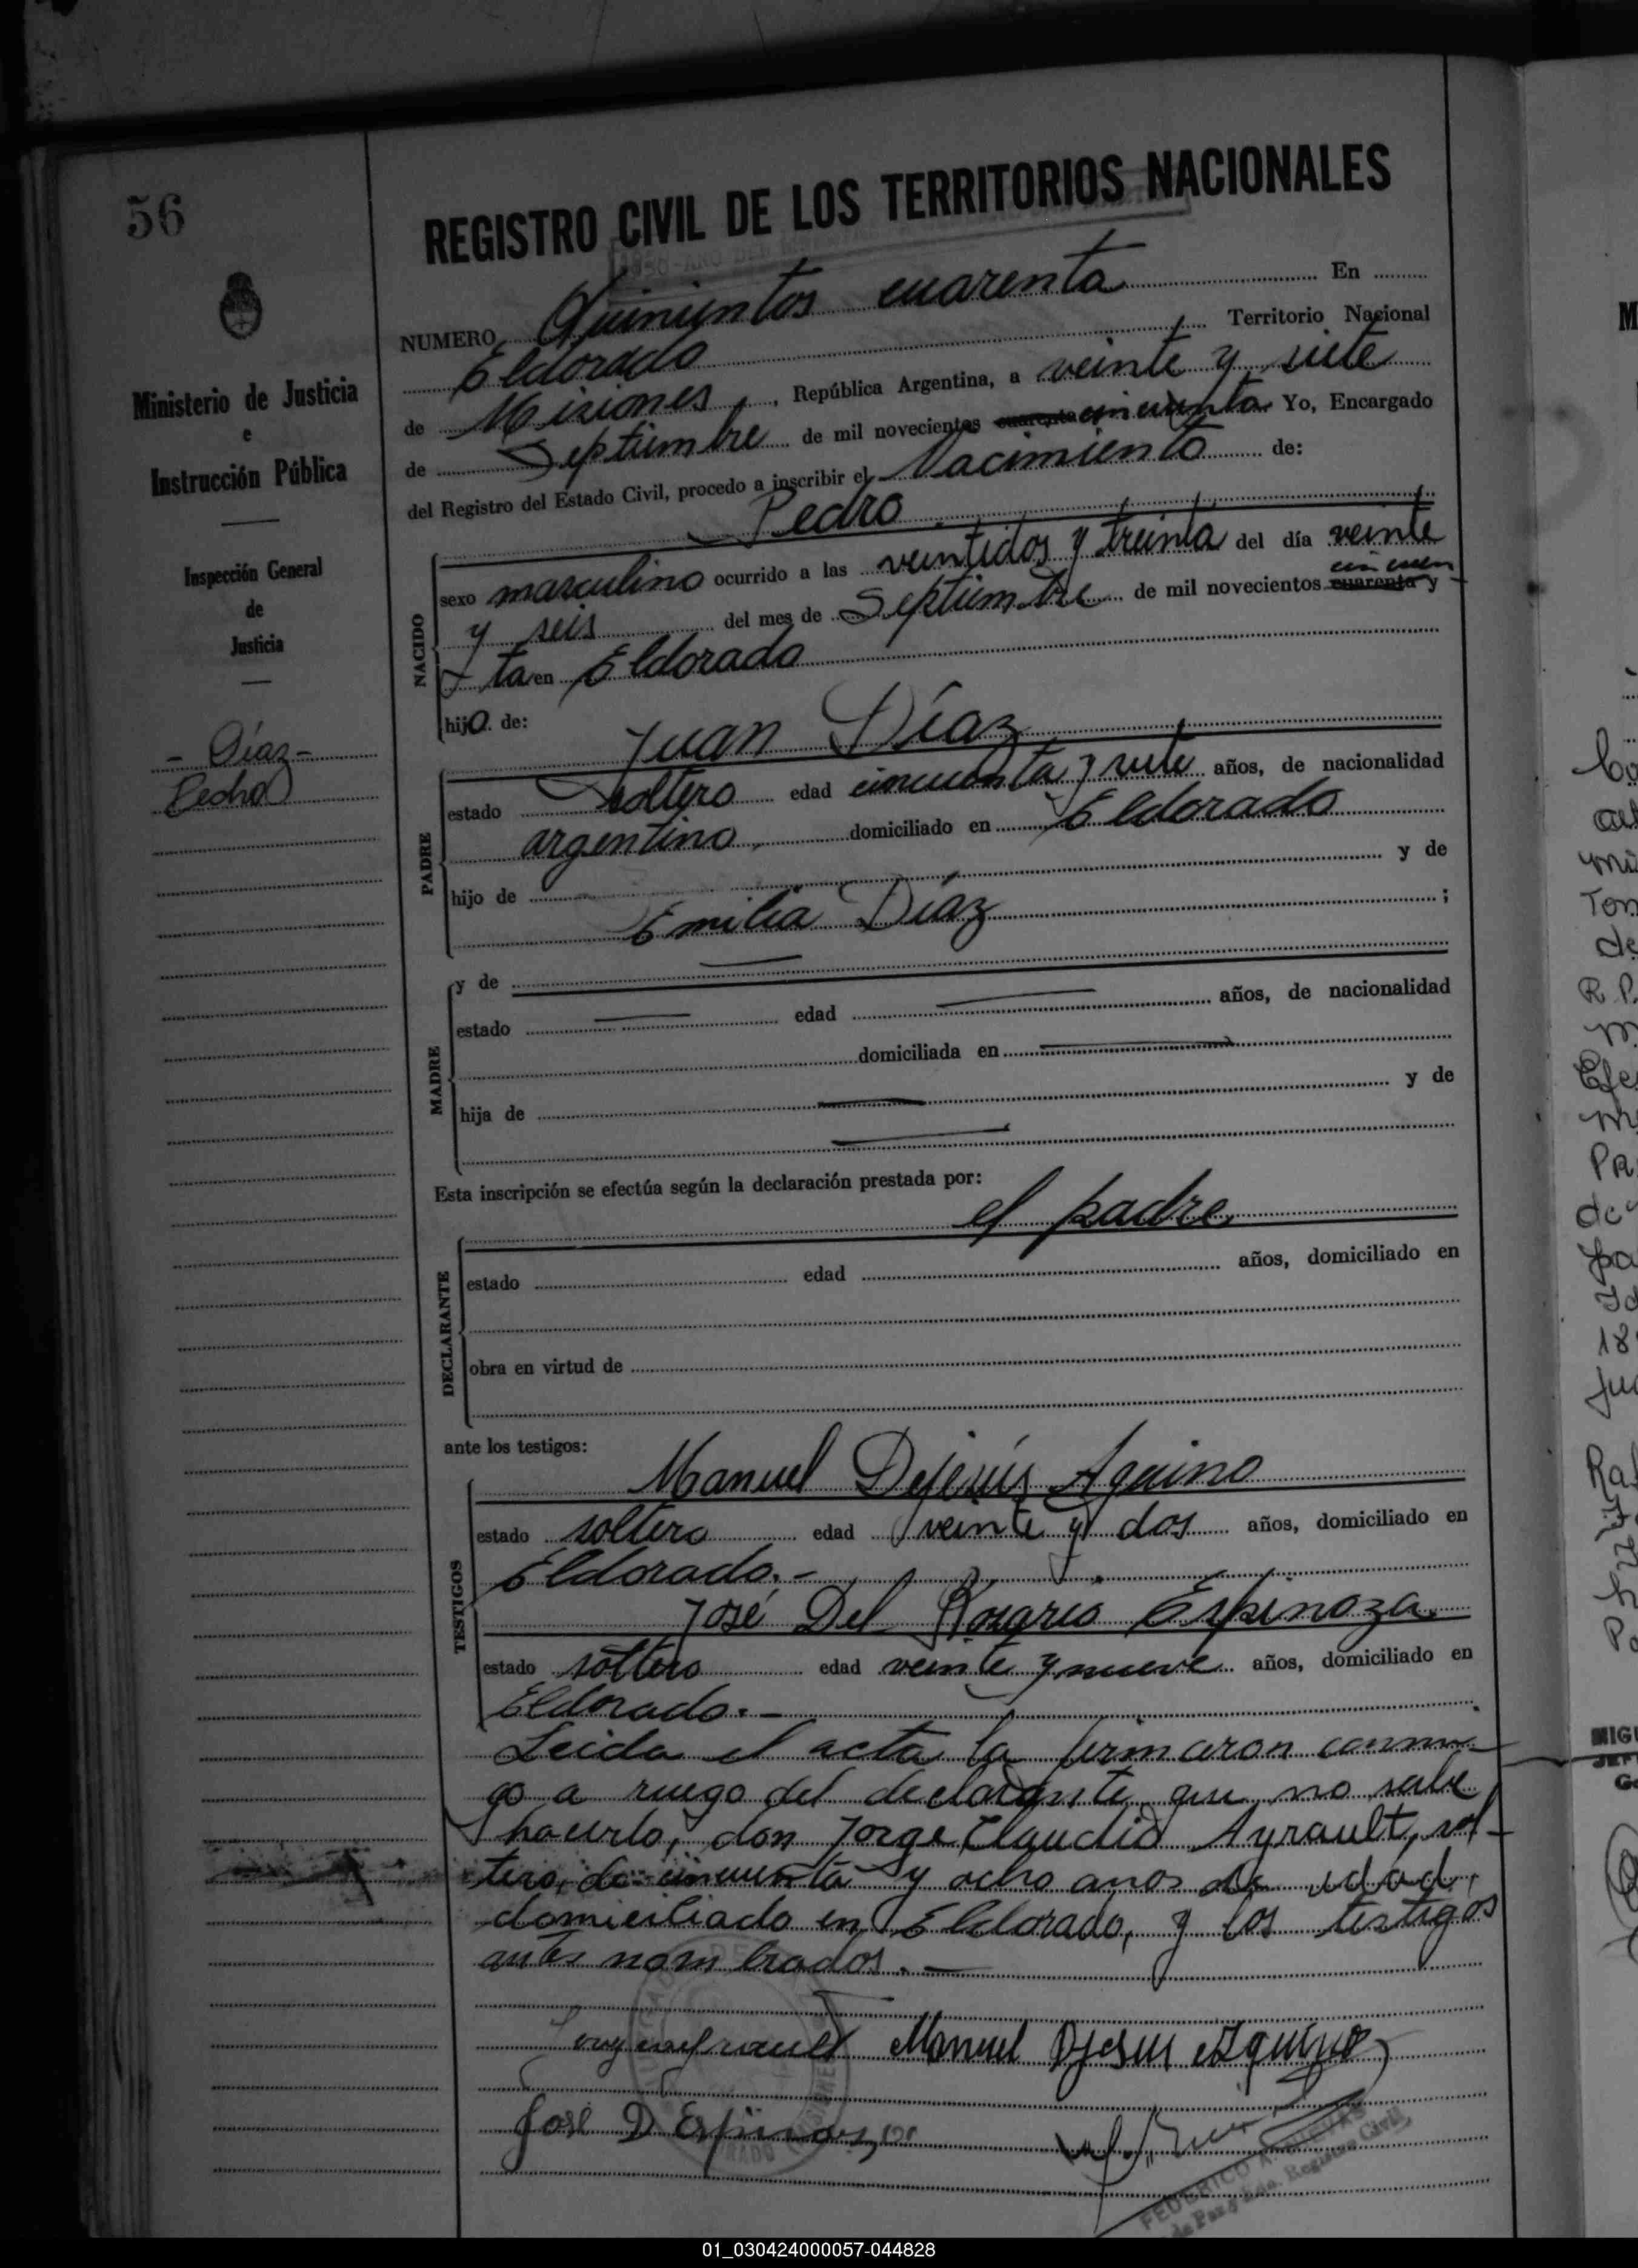 56
REGISTRO CIVIL DE LOS TERRITORIOS NACIONALES
NUMERO Quinientos cuarenta En
Eldorado Territorio Nacional
de Misiones, República Argentina, a veinte y siete
de Septiembre de mil novecientos cuarenta cincuenta Yo, Encargado
del Registro del Estado Civil, procedo a inscribir el Nacimiento de:
Pedro
NACIDO
sexo masculino ocurrido a las veintidos y treinta del día veinte
y seis del mes de Septiembre de mil novecientos cuarenta y cincuen
ta en Eldorado
hijo de:
Juan Díaz
PADRE
estado soltero edad cincuenta y siete años, de nacionalidad
argentino, domiciliado en Eldorado
hijo de y de
Emilia Díaz ;
y de
MADRE
estado edad años, de nacionalidad
domiciliada en
hija de y de
Esta inscripción se efectúa según la declaración prestada por:
el padre
DECLARANTE
estado edad años, domiciliado en
obra en virtud de
ante los testigos:
Manuel DeJesús Aquino
TESTIGOS
estado soltero edad veinte y dos años, domiciliado en
Eldorado.-
José Del Rosario Espinoza.
estado soltero edad veinte y nueve años, domiciliado en
Eldorado.-
Leida el acta la firmaron conmi-
go a ruego del declarante que no sabe
hacerlo, don Jorge Claudio Ayrault, sol-
tero, de cincuenta y ocho anos de edad,
domiciliado en Eldorado, y los testigos
antes nombrados.-
Manuel Djesus Aquino
José D Espinoza
FEDERICO A.
Registro Civil
Ministerio de Justicia
e
Instrucción Pública
Inspección General
de
Justicia
- Díaz -
Pedro
MIGU
01_030424000057-044828